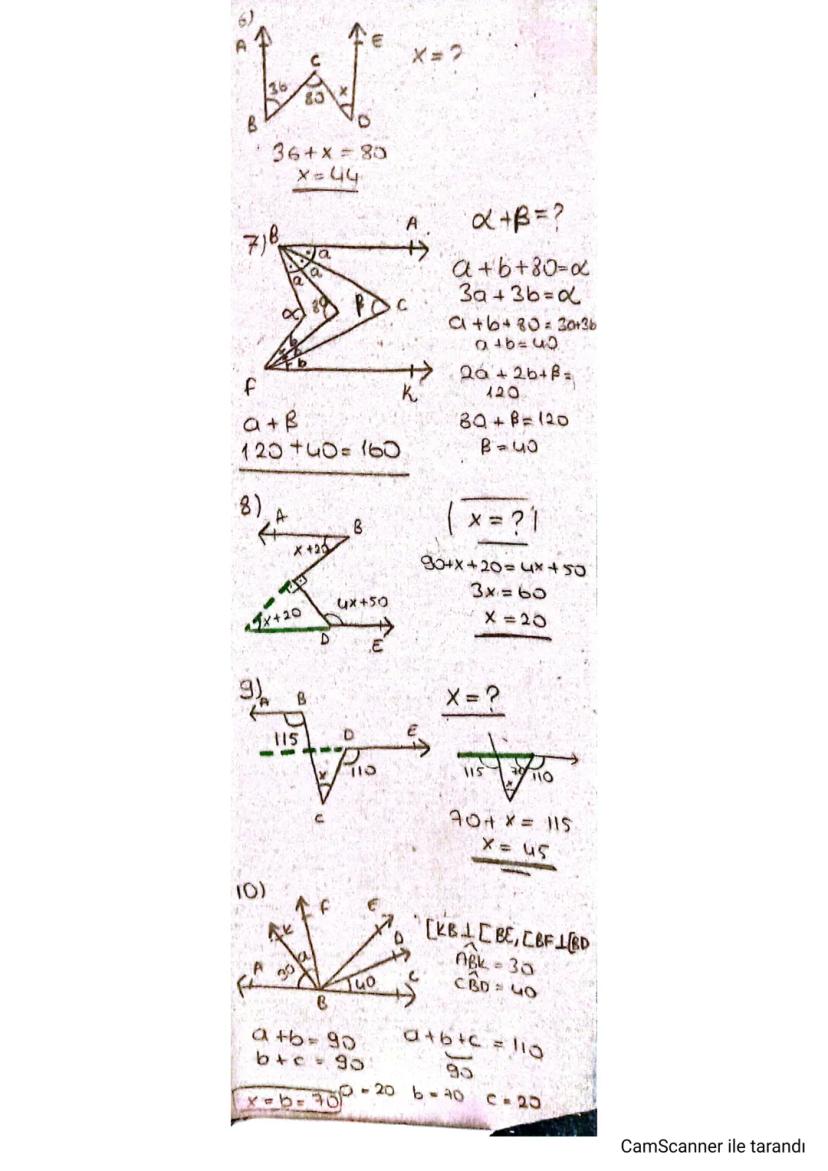 6)
A E
C
x = ?
36
80
x
B D
36+x = 80
x = 44
α+β=?
7) B A
a
a
a
a+b+80=α
3a+3b=α
α 80 β C
a+b+80=3a+3b
a+b=40
b
b
b
F K
2a+2b+β=
120
a+β
80+β=120
120+40=160
β=40
8)
A B
x = ?
x+20
90+x+20=4x+50
3x=60
4x+50
x+20
x = 20
D E
9)
A B
x = ?
115
D E
110
x
C
115 70 110
x
70+x = 115
x = 45
10)
F E
K D
[KB⊥[BE, [BF⊥[BD
A a
30
ABK = 30
40 C
CBD = 40
B
a+b=90
b+c=90
a+b+c = 110
90
x=b=70 a=20 b=70 c=20
CamScanner ile tarandı